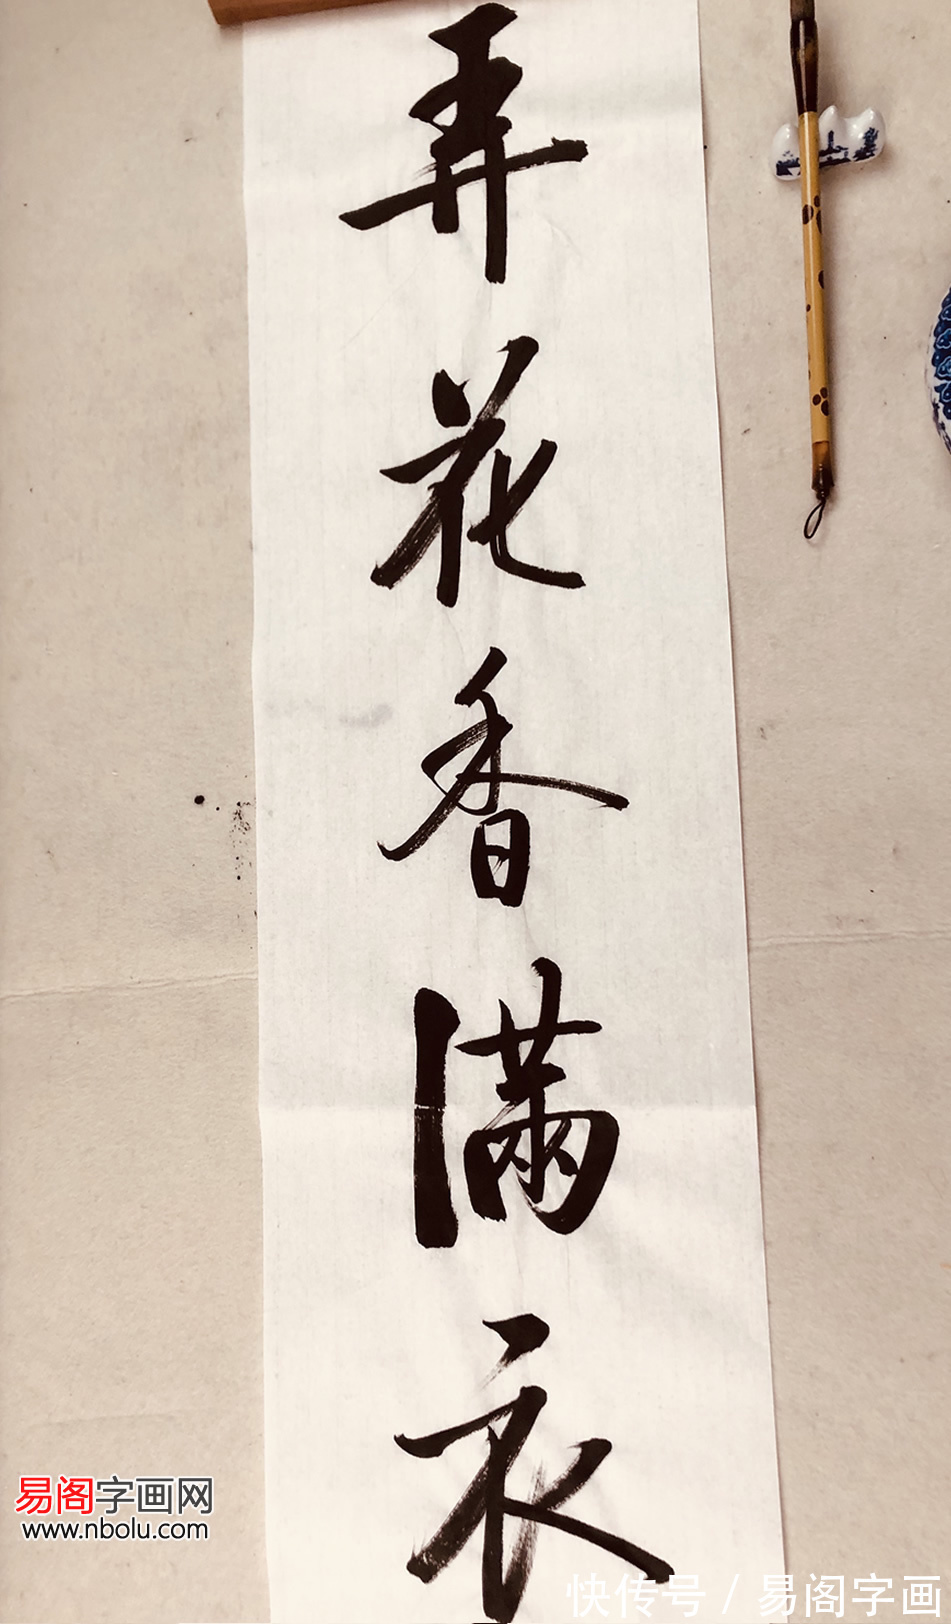 弄花香满衣
易阁字画网
www.nbolu.com
快传号 / 易阁字画